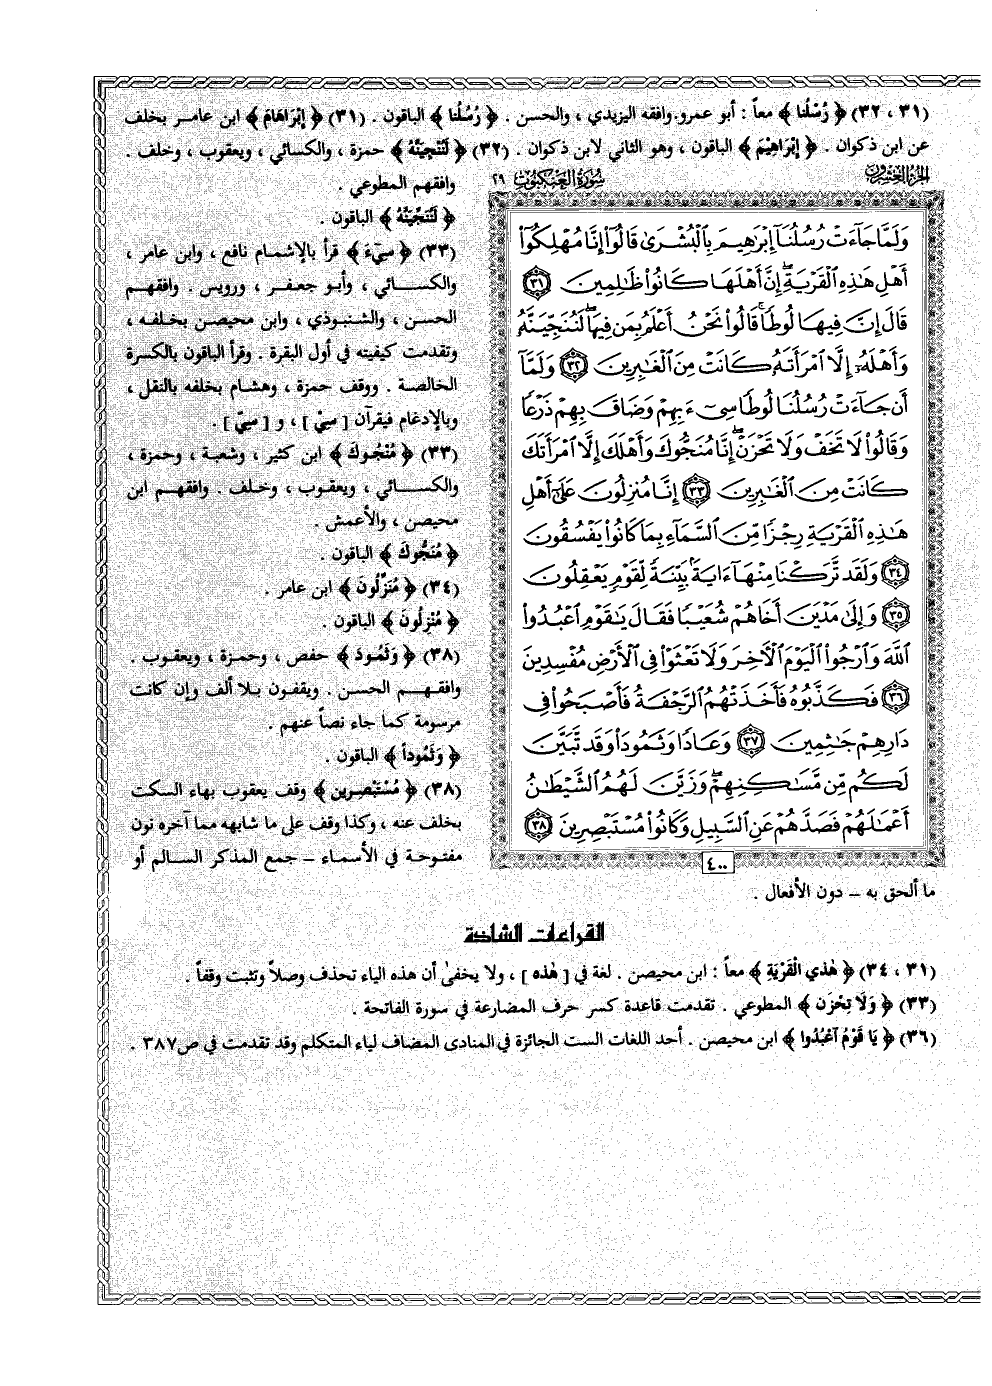 (٣١ ، ٣٢) ﴿ رُسْلُنا ﴾ معاً : أبو عمرو. وافقه اليزيدي ، والحسن . ﴿ رُسُلُنا ﴾ الباقون . (٣١) ﴿ إبْرَاهَامَ ﴾ ابن عامر بخلف
عن ابن ذكوان . ﴿ إبْرَاهِيْمَ ﴾ الباقون ، وهو الثاني لابن ذكوان . (٣٢) ﴿ لَنُنْجِيَنَّهُ ﴾ حمزة ، والكسائي ، ويعقوب ، وخلف .
وافقهم المطوعي .
﴿ لَنُنَجِّيَنَّهُ ﴾ الباقون .
(٣٣) ﴿ سيْءَ ﴾ قرأ بالإشمام نافع ، وابن عامر ،
والكسائي ، وأبو جعفر ، ورويس . وافقهم
الحسن ، والشنبوذي ، وابن محيصن بخلفه ،
وتقدمت كيفيته في أول البقرة . وقرأ الباقون بالكسرة
الخالصة . ووقف حمزة ، وهشام بخلفه بالنقل ،
وبالإدغام فيقرآن [ سيْ ] ، و [ سيّ ] .
(٣٣) ﴿ مُنْجُوكَ ﴾ ابن كثير ، وشعبة ، وحمزة ،
والكسائي ، ويعقوب ، وخلف . وافقهم ابن
محيصن ، والأعمش .
﴿ مُنَجُّوكَ ﴾ الباقون .
(٣٤) ﴿ مُنَزِّلُونَ ﴾ ابن عامر .
﴿ مُنْزِلُونَ ﴾ الباقون .
(٣٨) ﴿ وَثَمُودَ ﴾ حفص ، وحمزة ، ويعقوب .
وافقهم الحسن . ويقفون بلا ألف وإن كانت
مرسومة كما جاء نصاً عنهم .
﴿ وَثَمُوداً ﴾ الباقون .
(٣٨) ﴿ مُسْتَبْصِرين ﴾ وقف يعقوب بهاء السكت
بخلف عنه ، وكذا وقف على ما شابهه مما آخره نون
مفتوحة في الأسماء – جمع المذكر السالم أو
ما ألحق به – دون الأفعال .
الجزء العشرون
سورة العنكبوت ٢٩
وَلَمَّا جَآءَتْ رُسُلُنَآ إِبْرَٰهِيمَ بِٱلْبُشْرَىٰ قَالُوٓا۟ إِنَّا مُهْلِكُوٓا۟
أَهْلِ هَٰذِهِ ٱلْقَرْيَةِ ۖ إِنَّ أَهْلَهَا كَانُوا۟ ظَٰلِمِينَ ٣١
قَالَ إِنَّ فِيهَا لُوطًا ۚ قَالُوا۟ نَحْنُ أَعْلَمُ بِمَن فِيهَا ۖ لَنُنَجِّيَنَّهُۥ
وَأَهْلَهُۥٓ إِلَّا ٱمْرَأَتَهُۥ كَانَتْ مِنَ ٱلْغَٰبِرِينَ ٣٢ وَلَمَّآ
أَن جَآءَتْ رُسُلُنَا لُوطًا سِىٓءَ بِهِمْ وَضَاقَ بِهِمْ ذَرْعًا
وَقَالُوا۟ لَا تَخَفْ وَلَا تَحْزَنْ ۖ إِنَّا مُنَجُّوكَ وَأَهْلَكَ إِلَّا ٱمْرَأَتَكَ
كَانَتْ مِنَ ٱلْغَٰبِرِينَ ٣٣ إِنَّا مُنزِلُونَ عَلَىٰٓ أَهْلِ
هَٰذِهِ ٱلْقَرْيَةِ رِجْزًا مِّنَ ٱلسَّمَآءِ بِمَا كَانُوا۟ يَفْسُقُونَ
٣٤ وَلَقَد تَّرَكْنَا مِنْهَآ ءَايَةًۢ بَيِّنَةً لِّقَوْمٍ يَعْقِلُونَ
٣٥ وَإِلَىٰ مَدْيَنَ أَخَاهُمْ شُعَيْبًا فَقَالَ يَٰقَوْمِ ٱعْبُدُوا۟
ٱللَّهَ وَٱرْجُوا۟ ٱلْيَوْمَ ٱلْأَخِرَ وَلَا تَعْثَوْا۟ فِى ٱلْأَرْضِ مُفْسِدِينَ
٣٦ فَكَذَّبُوهُ فَأَخَذَتْهُمُ ٱلرَّجْفَةُ فَأَصْبَحُوا۟ فِى
دَارِهِمْ جَٰثِمِينَ ٣٧ وَعَادًا وَثَمُودَا۟ وَقَد تَّبَيَّنَ
لَكُم مِّن مَّسَٰكِنِهِمْ ۖ وَزَيَّنَ لَهُمُ ٱلشَّيْطَٰنُ
أَعْمَٰلَهُمْ فَصَدَّهُمْ عَنِ ٱلسَّبِيلِ وَكَانُوا۟ مُسْتَبْصِرِينَ ٣٨
٤٠٠
القراءات الشاذة
(٣١ ، ٣٤) ﴿ هٰذي الْقَرْيَةِ ﴾ معاً : ابن محيصن . لغة في [ هٰذه ] ، ولا يخفىٰ أن هذه الياء تحذف وصلاً وتثبت وقفاً .
(٣٣) ﴿ وَلَا تِحْزَن ﴾ المطوعي . تقدمت قاعدة كسر حرف المضارعة في سورة الفاتحة .
(٣٦) ﴿ يَا قَوْمُ آعْبُدُوا ﴾ ابن محيصن . أحد اللغات الست الجائزة في المنادى المضاف لياء المتكلم وقد تقدمت في ص٣٨٧ .